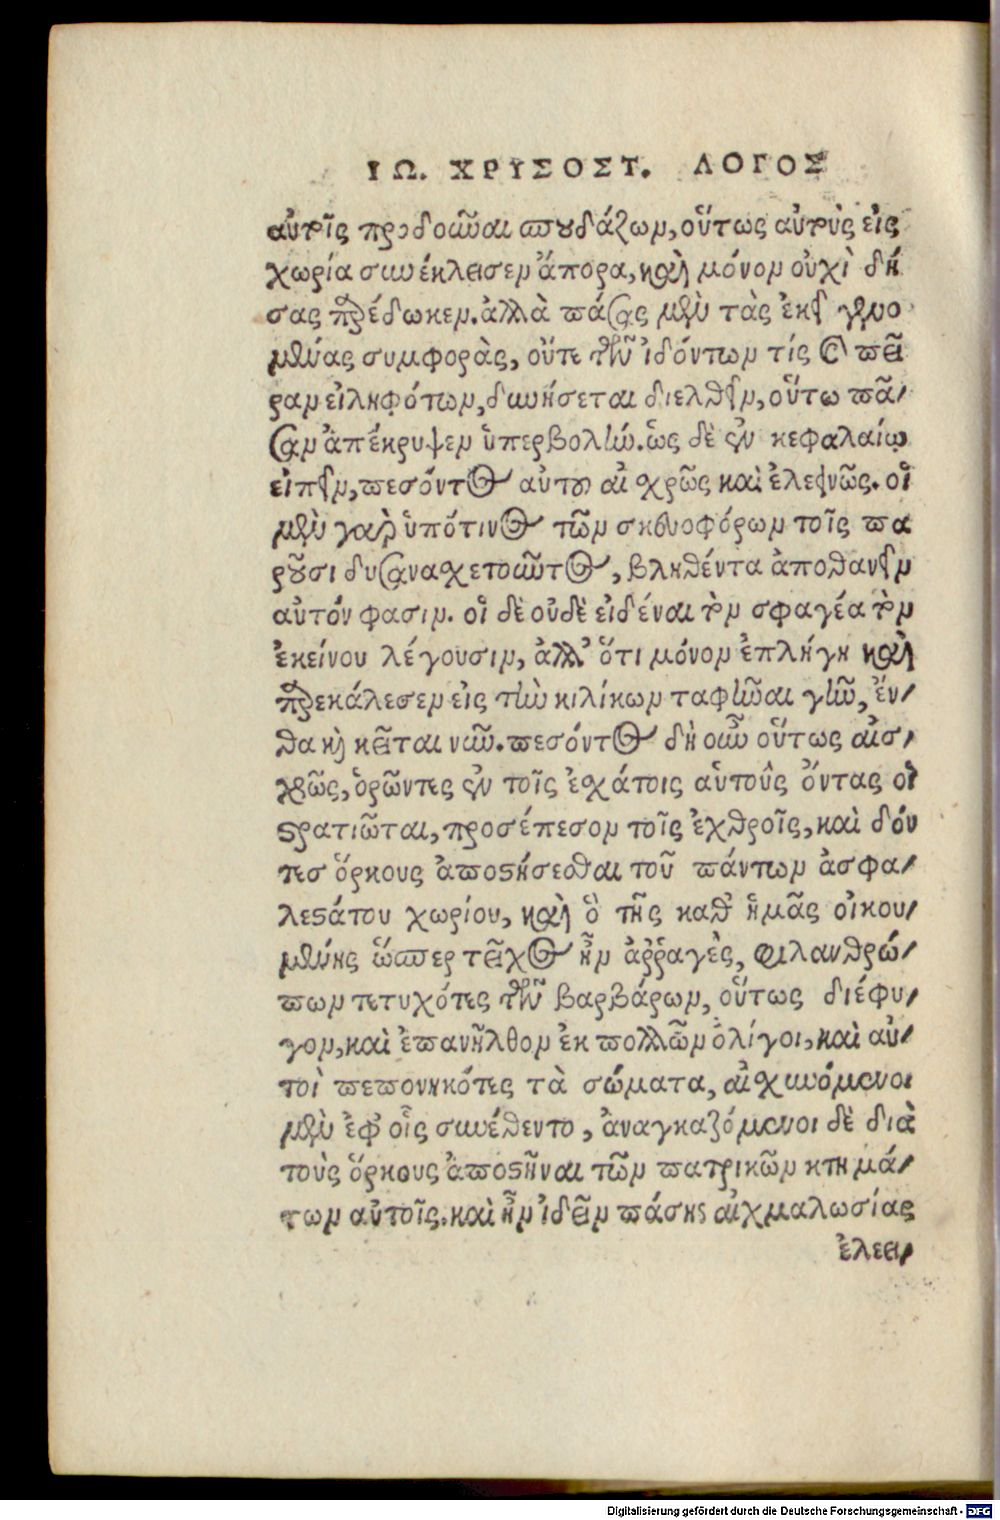 ΙΩ. ΧΡΥΣΟΣΤ. ΛΟΓΟΣ
αὐτοῖς προδοῦναι σπουδάζων, οὕτως αὐτοὺς εἰς
χωρία συνέκλεισεν ἄπορα, καὶ μόνον οὐχὶ δή
σας παρέδωκεν. ἀλλὰ πάσας μὲν τὰς ἐκεῖ γενο
μένας συμφορὰς, οὔτε τῶν ἰδόντων τίς καὶ πεῖ
ραν εἰληφότων, δυνήσεται διελθεῖν, οὕτω πᾶ-
σαν ἀπέκρυψεν ὑπερβολήν. ὡς δὲ ἐν κεφαλαίῳ
εἰπεῖν, πεσόντος αὐτοῦ αἰσχρῶς καὶ ἐλεεινῶς. οἱ
μὲν γὰρ ὑπό τινος τῶν σκευοφόρων τοῖς πα
ροῦσι δυσανασχετοῦντος, βληθέντα ἀποθανεῖν
αὐτόν φασιν. οἱ δὲ οὐδὲ εἰδέναι τὸν σφαγέα τὸν
ἐκείνου λέγουσιν, ἀλλ' ὅτι μόνον ἐπλήγη καὶ
παρεκάλεσεν εἰς τὴν κιλίκων ταφῆναι γῆν, ἔν-
θα καὶ κεῖται νῦν. πεσόντος δὴ οὖν οὕτως αἰσ-
χρῶς, ὁρῶντες ἐν τοῖς ἐσχάτοις αὑτοὺς ὄντας οἱ
στρατιῶται, προσέπεσον τοῖς ἐχθροῖς, καὶ δόν
τεσ ὅρκους ἀποστήσεσθαι τοῦ πάντων ἀσφα-
λεστάτου χωρίου, καὶ ὃ τῆς καθ' ἡμᾶς οἰκου-
μένης ὥσπερ τεῖχος ἦν ἀῤῥαγὲς, φιλανθρώ-
πων τετυχότες τῶν βαρβάρων, οὕτως διέφυ-
γον, καὶ ἐπανῆλθον ἐκ πολλῶν ὀλίγοι, καὶ αὐ-
τοὶ πεπονηκότες τὰ σώματα, αἰσχυνόμενοι
μὲν ἐφ' οἷς συνέθεντο, ἀναγκαζόμενοι δὲ διὰ
τοὺς ὅρκους ἀποστῆναι τῶν πατρικῶν κτημά-
των αὐτοῖς. καὶ ἦν ἰδεῖν πάσης αἰχμαλωσίας
ἐλεει-
Digitalisierung gefördert durch die Deutsche Forschungsgemeinschaft - DFG